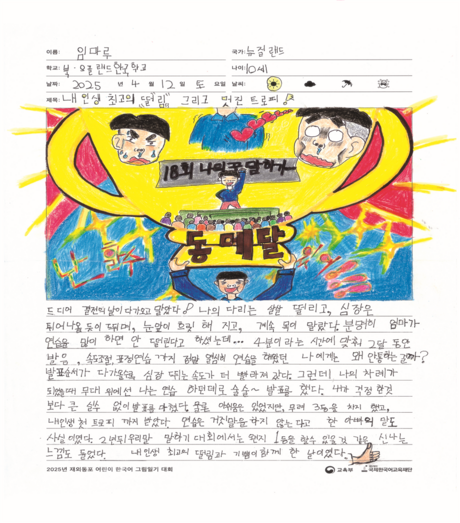 이름: 임마루
국가: 뉴질랜드
학교: 북·오클랜드 한국 학교
나이: 10세
날짜: 2025 년 4 월 12 일 토 요일
날씨:
제목: 내 인생 최고의 "떨림" 그리고 멋진 트로피
18회 나의 꿈 말하기
동메달
난 할수 있어
드디어 결전의 날이 다가오고 말았다 나의 다리는 떨리고, 심장은
튀어나올 듯이 뛰며, 눈앞이 흐릿 해 지고, 계속 목이 말랐다. 분명히 엄마가
연습을 많이 하면 안 떨린다고 하셨는데... 4분이라는 시간에 맞춰 그 달 동안
발음, 속도조절, 표정연습 까지 정말 열심히 연습을 하였던 나에게는 왜 안통하는 걸까?
발표순서가 다가올수록, 심장 뛰는 속도가 더 빨라져 갔다. 그런데! 나의 차례가
되었을때 무대 위에선 나는 연습 하던데로 술술~ 발표를 했다. 내가 걱정 했던 것
보다 큰 실수 없이 발표를 마쳤다. 물론 아쉬움은 있었지만, 무려 3등을 차지 했고,
내 인생 첫 트로피 까지 받았다. 연습은 거짓말을 하지 않는 다고 한 아빠의 말도
사실이였다. 2년뒤 우리말 말하기 대회에서는 왠지 1등을 할수 있을것 같은 신나는
느낌도 들었다. 내 인생 최고의 떨림과 기쁨이 함께 한 날이였다.
2025년 재외동포 어린이 한국어 그림일기 대회
교육부 국제한국어교육재단